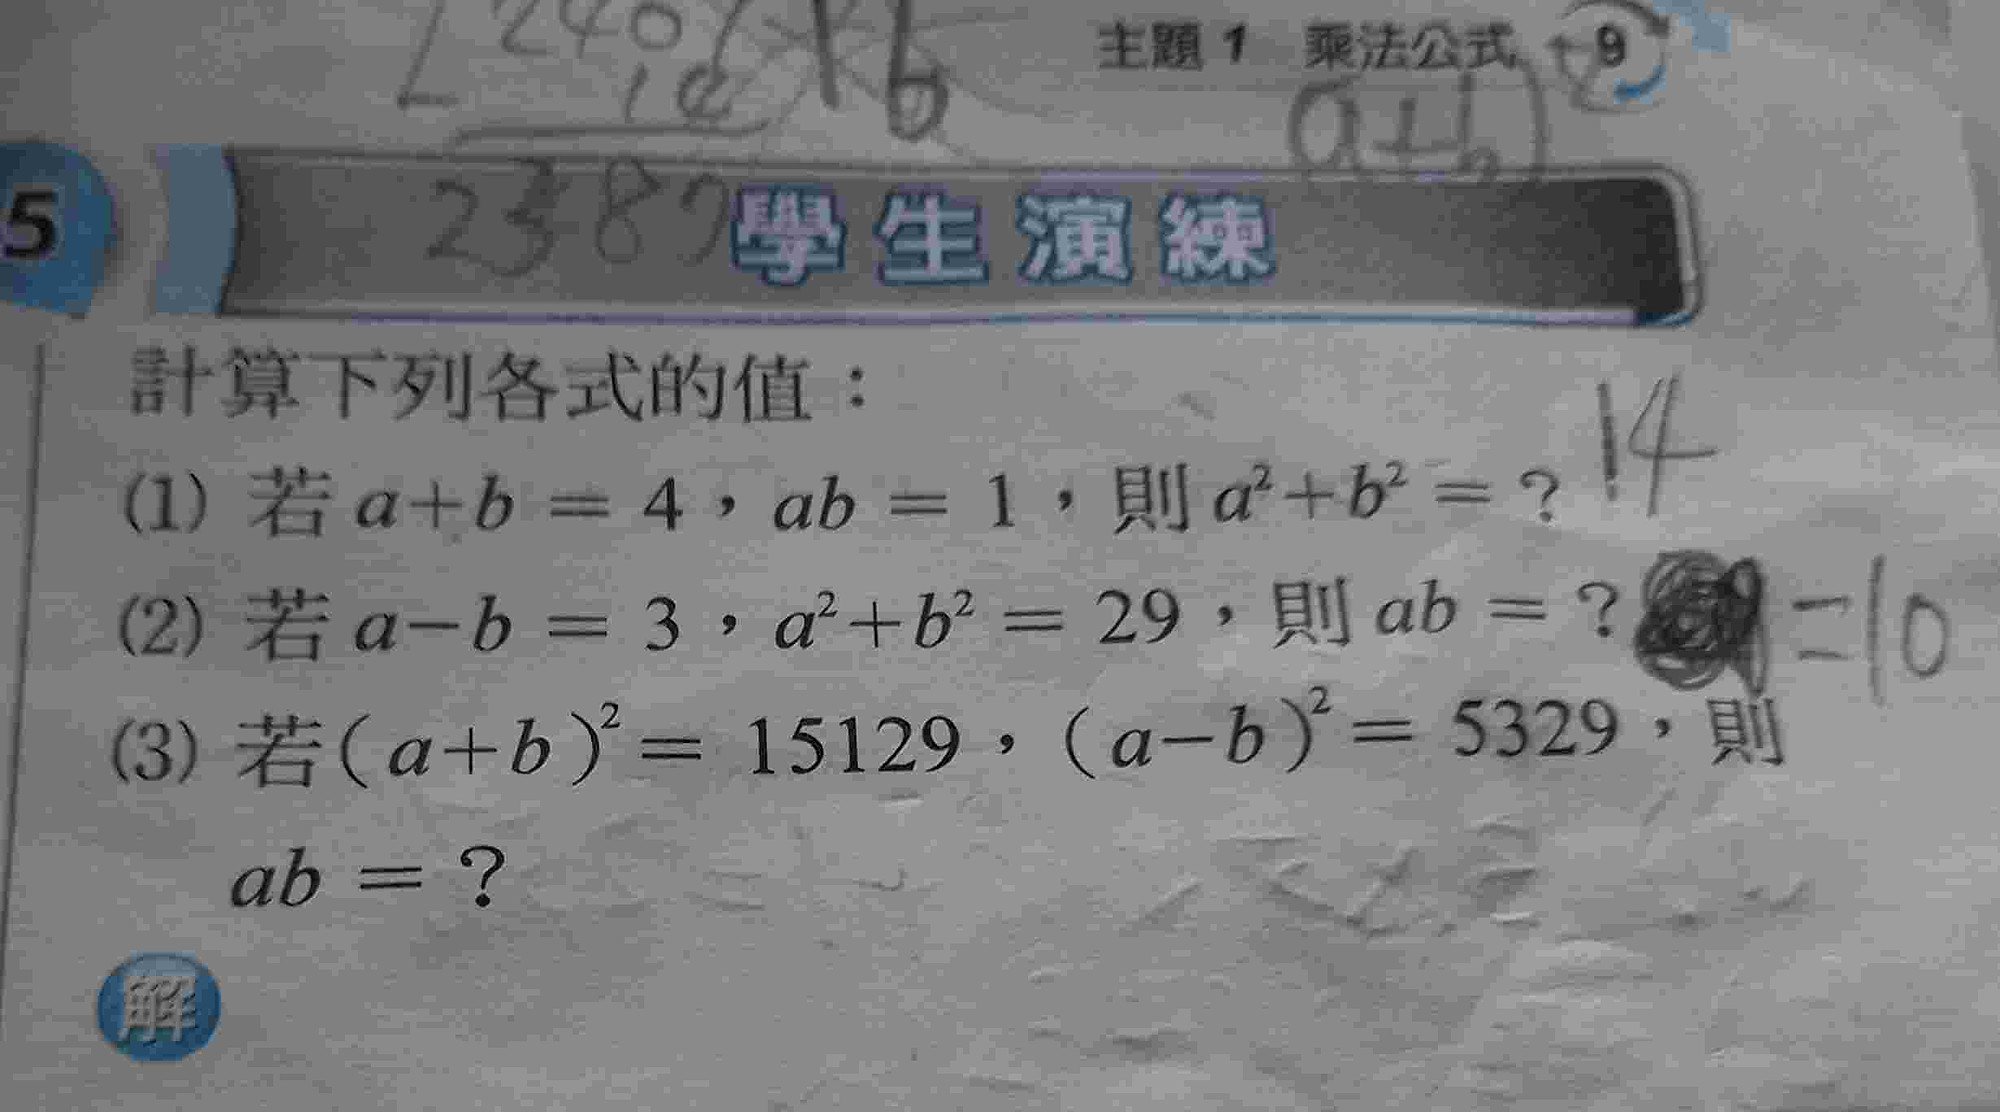 240
主題 1 乘法公式 9
(a+b)²
5
2389
學生演練
計算下列各式的值：
(1) 若 a+b = 4，ab = 1，則 a²+b² = ? 14
(2) 若 a−b = 3，a²+b² = 29，則 ab = ? =10
(3) 若(a+b)² = 15129，(a−b)² = 5329，則
ab = ?
解